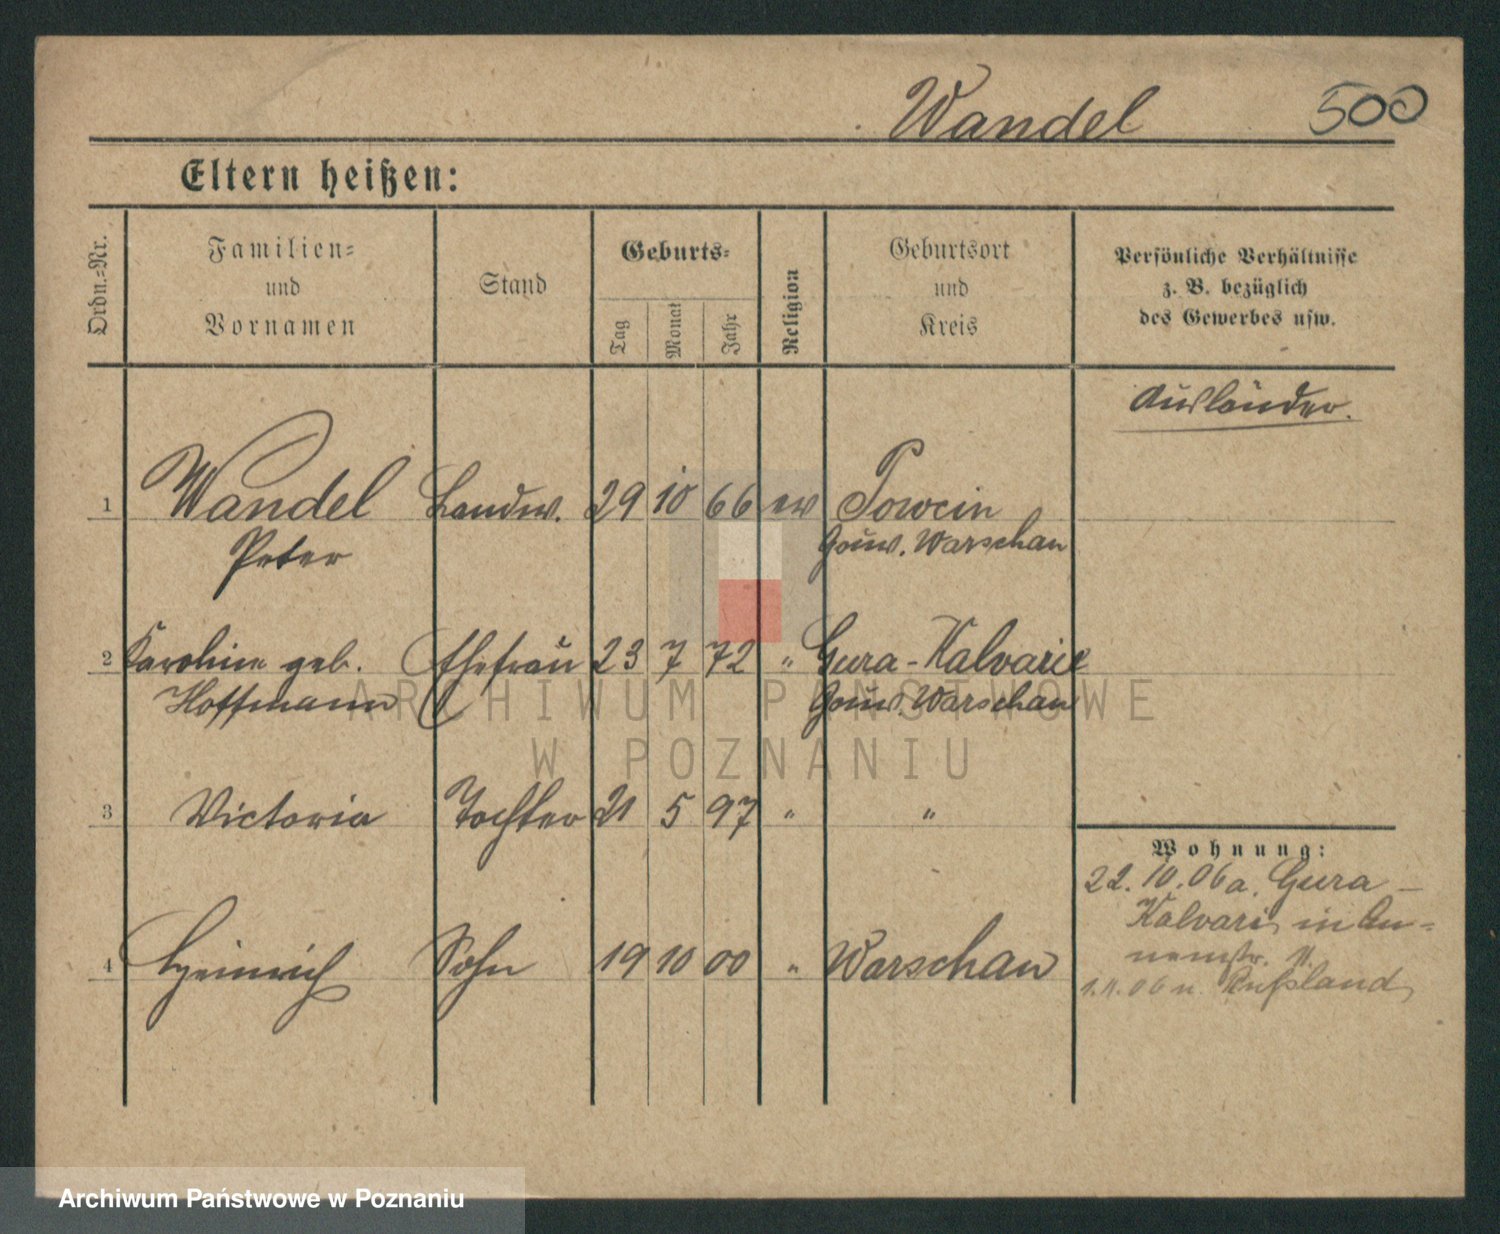 Wandel 500
Eltern heißen:
Ordn.-Nr.
Familien-
und
Vornamen
Stand
Geburts-
Tag
Monat
Jahr
Religion
Geburtsort
und
Kreis
Persönliche Verhältnisse
z. B. bezüglich
des Gewerbes usw.
Ausländer.
1 Wandel Landw. 29 10 66 ev
Peter Gouv. Warschau
2 Karoline geb. Ehefrau 23 7 72 " Gura-Kalvarie
Hoffmann Gouv. Warschau
3 Victoria Tochter 21 5 97 " "
Wohnung:
22. 10. 06 a. Gura-
Kalvari in
4 Heinrich Sohn 19 10 00 " Warschau
06 n. Rußland
ARCHIWUM PAŃSTWOWE
W POZNANIU
Archiwum Państwowe w Poznaniu